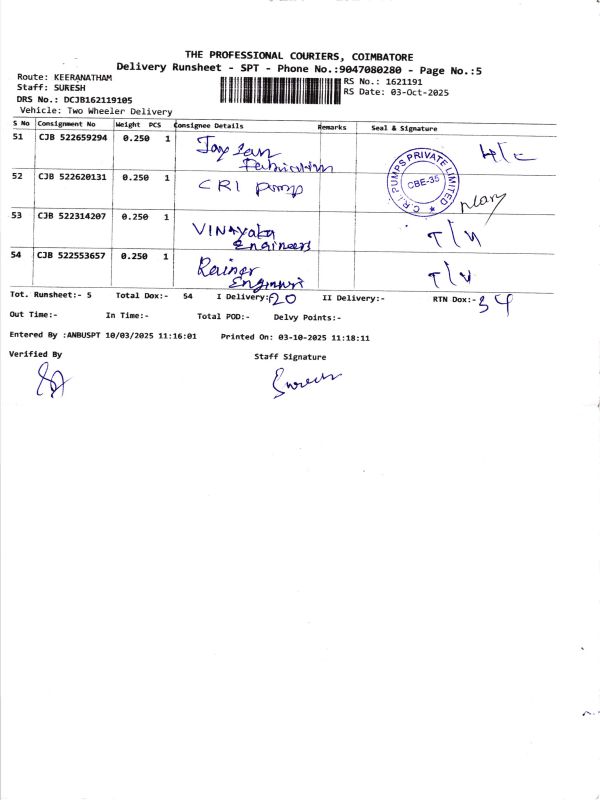 THE PROFESSIONAL COURIERS, COIMBATORE
Delivery Runsheet - SPT - Phone No.:9047080280 - Page No.:5
Route: KEERANATHAM
RS No.: 1621191
Staff: SURESH
RS Date: 03-Oct-2025
DRS No.: DCJB162119105
Vehicle: Two Wheeler Delivery
S No Consignment No Weight PCS Consignee Details Remarks Seal & Signature
51 CJB 522659294 0.250 1
52 CJB 522620131 0.250 1 CRI pump
C.R.I. PUMPS PRIVATE LIMITED
CBE-35
53 CJB 522314207 0.250 1 VINAyaka
Engineers
54 CJB 522553657 0.250 1
Tot. Runsheet:- 5 Total Dox:- 54 I Delivery:- 20 II Delivery:- RTN Dox:- 34
Out Time:- In Time:- Total POD:- Delvy Points:-
Entered By :ANBUSPT 10/03/2025 11:16:01 Printed On: 03-10-2025 11:18:11
Verified By Staff Signature
Suresh